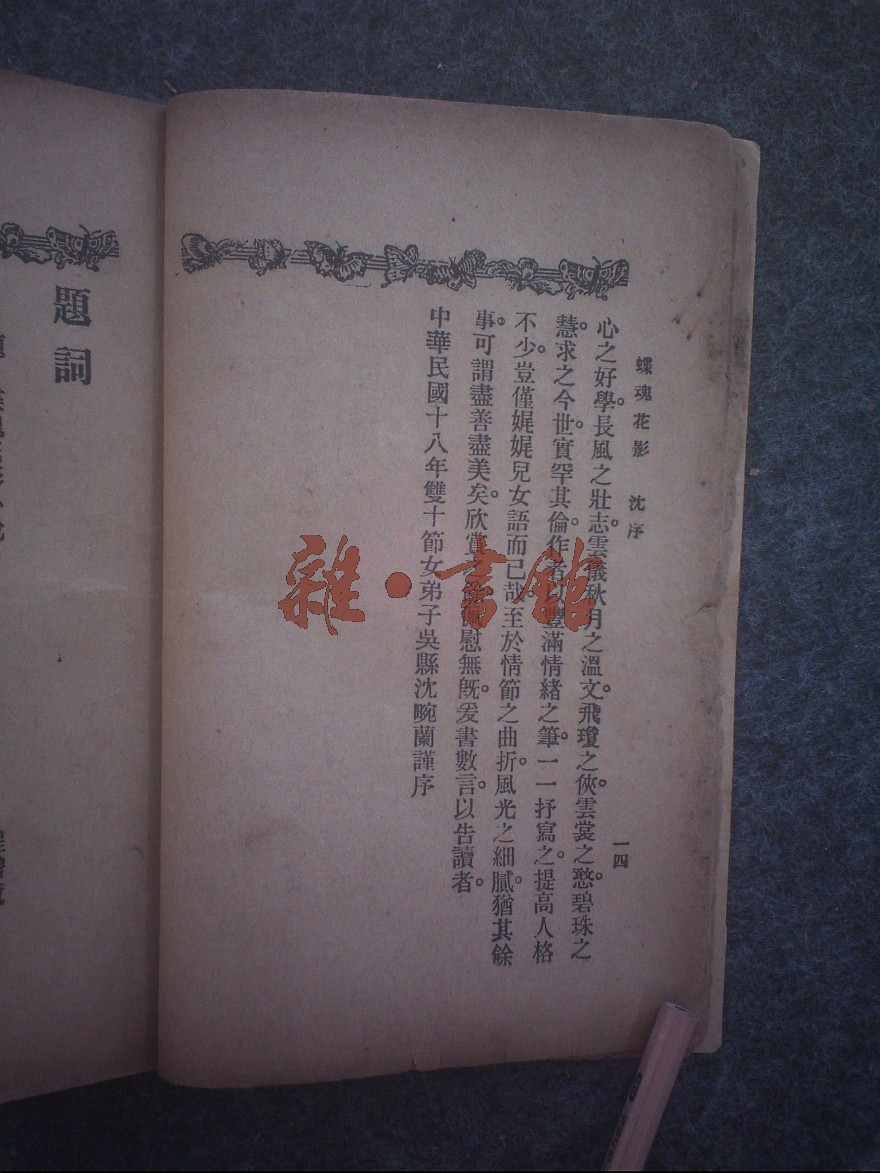 蝶魂花影　沈序
一四
心之好學。長風之壯志。雲儀秋月之溫文。飛瓊之俠。雲裳之憨。碧珠之
慧。求之今世。實罕其倫。作者以豐滿情緒之筆。一一抒寫之。提高人格
不少。豈僅娓娓兒女語而已哉。至於情節之曲折。風光之細膩。猶其餘
事。可謂盡善盡美矣。欣賞慰無旣。爰書數言。以告讀者。
中華民國十八年雙十節女弟子吳縣沈畹蘭謹序
題詞
雜·書館